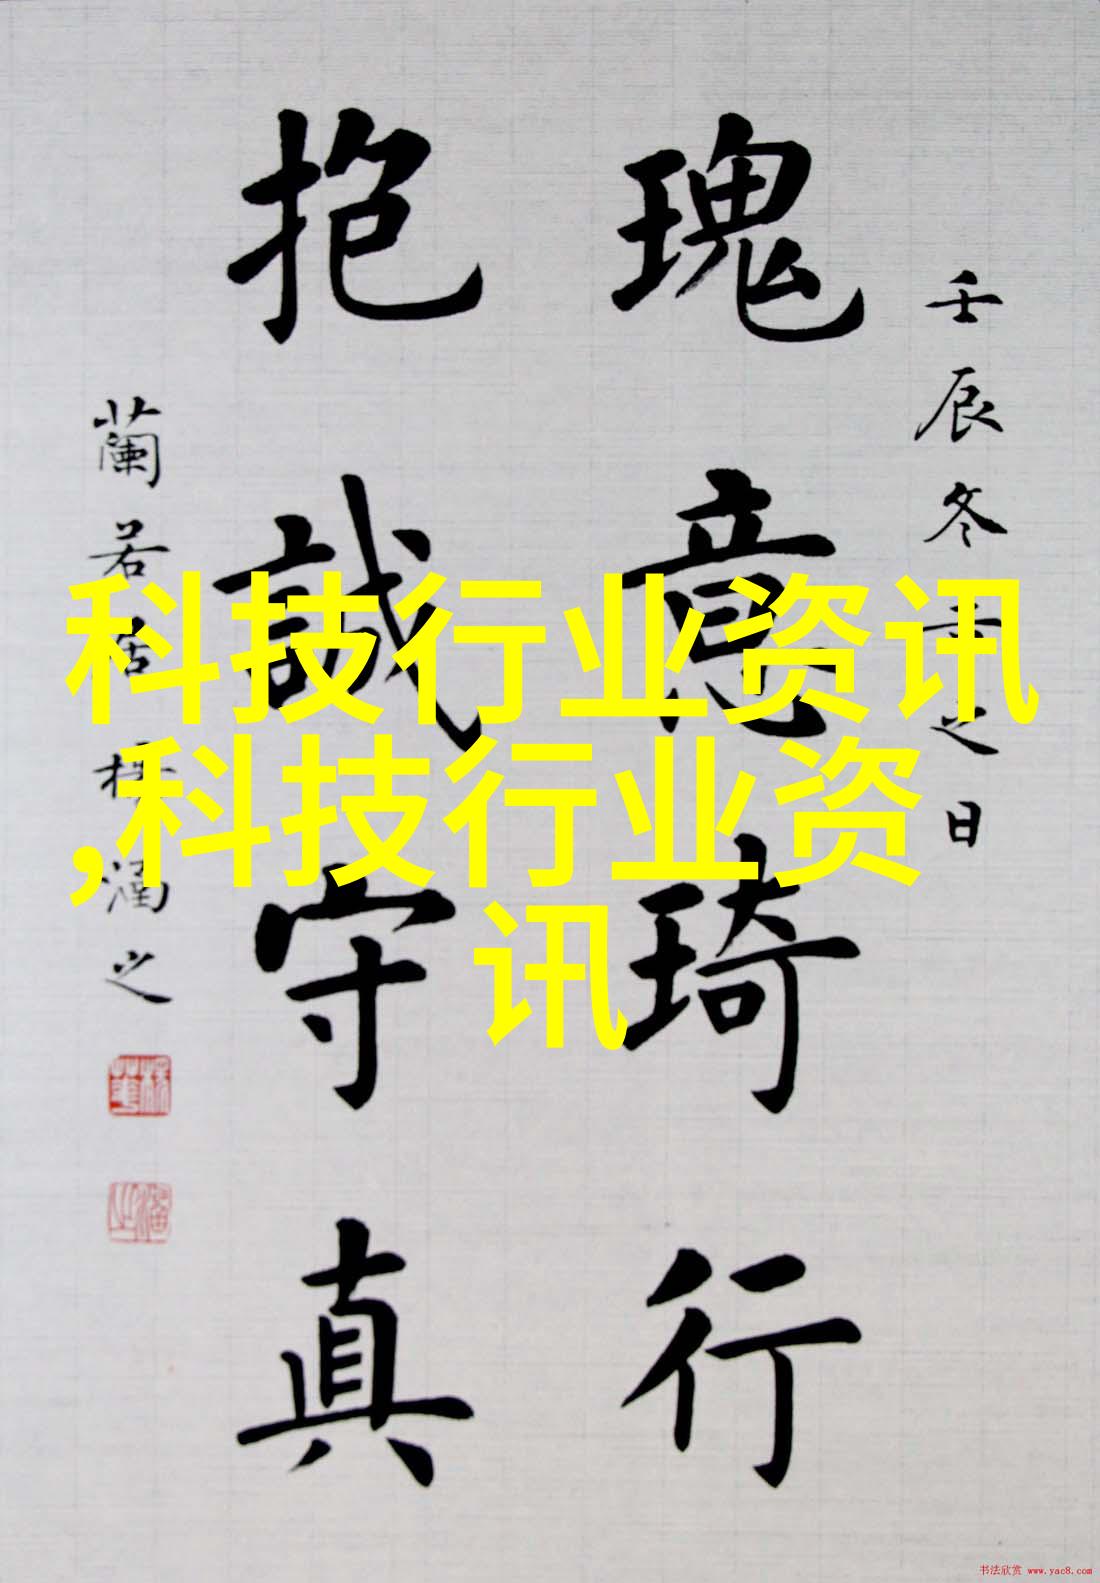 壬辰冬
之日
瑰意琦行
抱誠守真
蘭若
之
科技行业资讯
,科技行业资
讯
书法欣赏 www.yac8.com